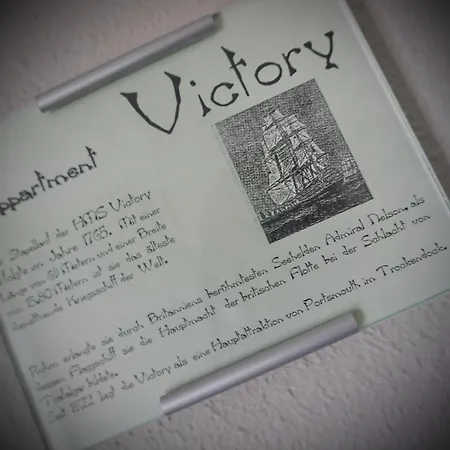 Victory
ppartment
Stapellauf der HMS Victory
folgte im Jahre 1765. Mit einer
Länge von Metern und einer Breite
von 15,80 Metern ist sie das älteste
Kriegsschiff der Welt.
Ruhm erlangte sie durch Britanniens berühmtesten Seehelden Admiral Nelson, als
dessen Flaggschiff sie die Hauptmacht der britischen Flotte bei der Schlacht von
Trafalgar bildete.
Seit 1922 liegt die Victory als eine Hauptattraktion von Portsmouth im Trockendock.